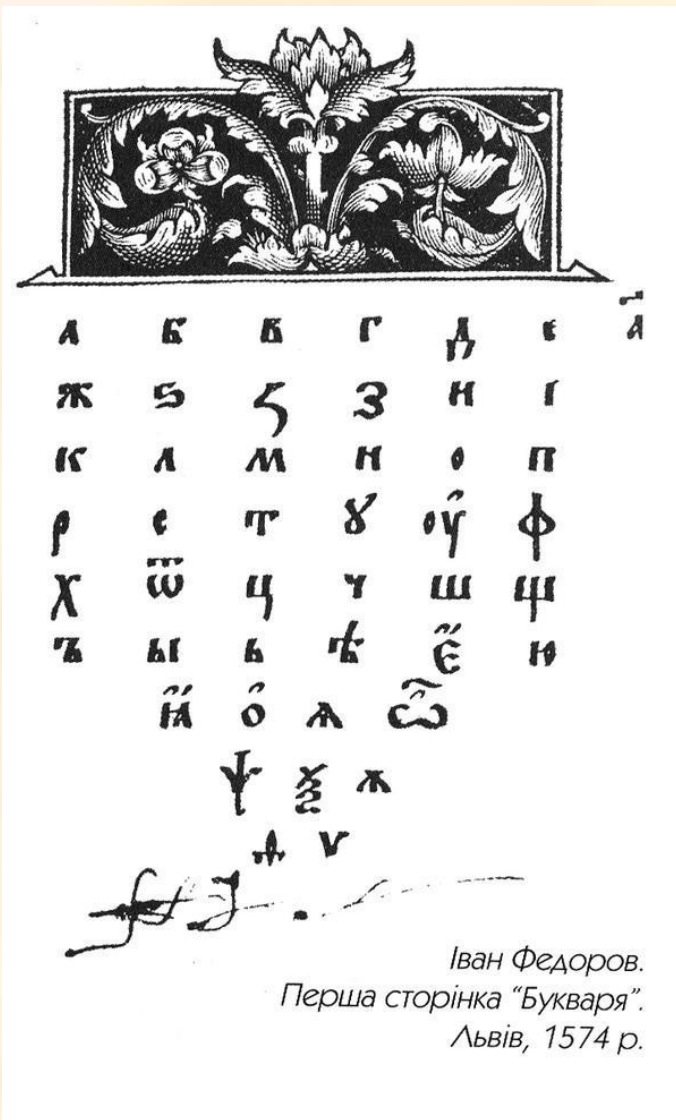 а҃
а б в г д є
ж ѕ ꙁ з и і
к л м н о п
р с т ꙋ оу҆ ф
х ѿ ц ч ш щ
ъ ы ь ѣ є҆ ю
ꙗ҆ о҆ ѧ ѽ
ѱ ѯ ѫ
ѳ ѵ
Іван Федоров.
Перша сторінка “Букваря”.
Львів, 1574 р.